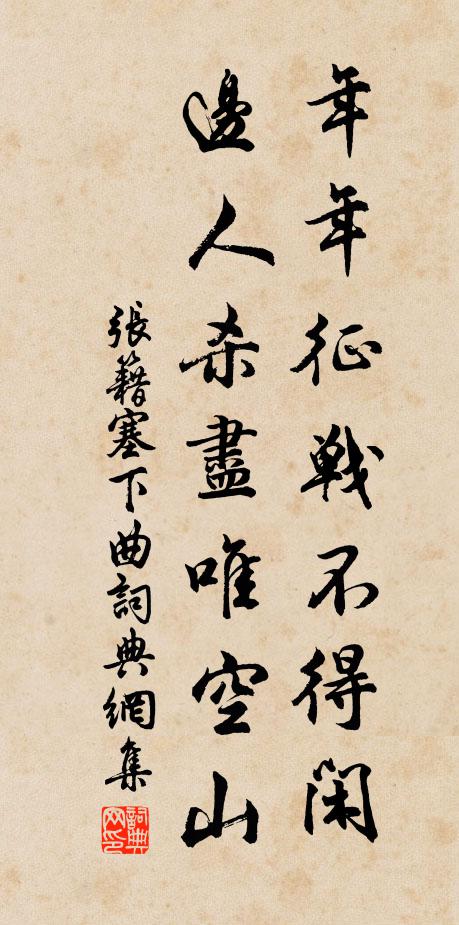 年年征戦不得闲
邊人杀盡唯空山
張籍塞下曲詞典網集
詞典网印